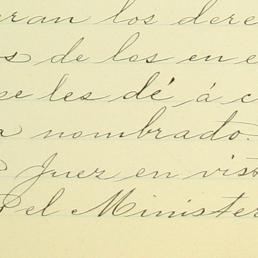 eran los dere
s de los en e
se les dé á c
a nombrado.
Juez en vist
el Minister